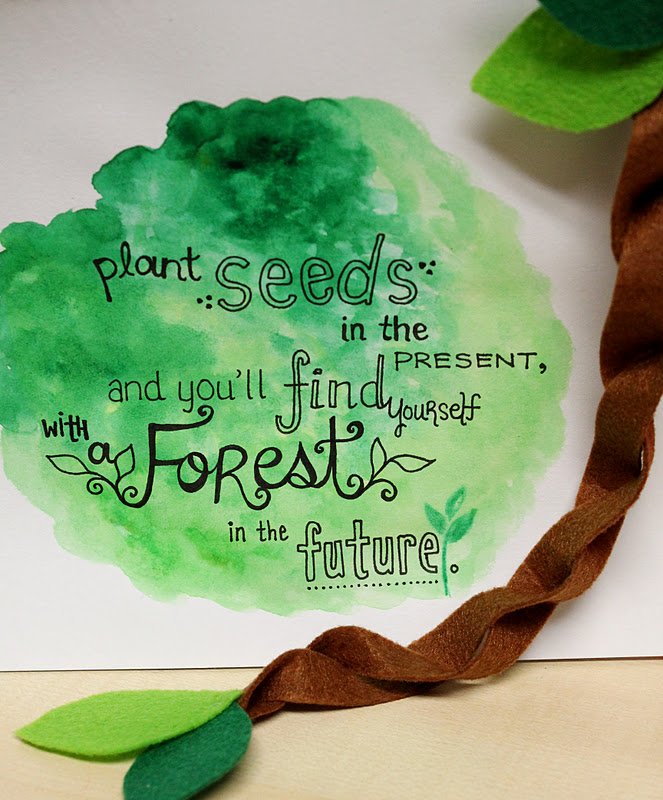 plant seeds
in the
PRESENT,
and you'll find yourself
with a Forest
in the future.